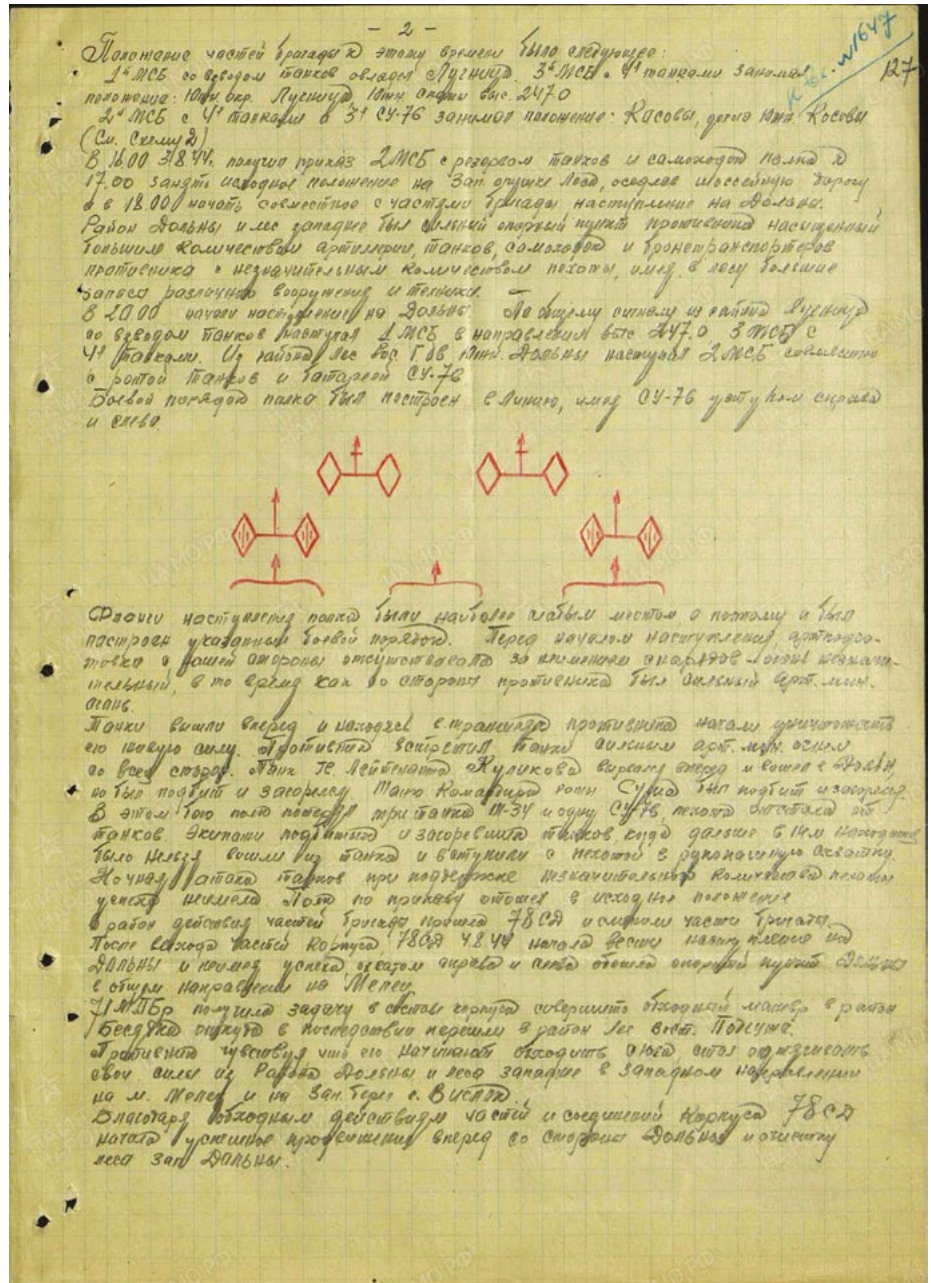 - 2 -
к вх. №1647
127
Положение частей бригады к этому времени было следующее:
1й МСБ со взводом танков овладел Лучница. 3й МСБ с 4я танками занимал
положение: Южн. окр. Лучница Южн. скаты выс. 247.0
2й МСБ с 4я танками и 3я СУ-76 занимал положение: Косовы, Южн. Косовы
(См. Схему 2)
В 16.00 3.8.44г. получил приказ 2МСБ с резервом танков и самоходок полка к
17.00 занять исходное положение на Зап. опушке леса, оседлав шоссейную дорогу
и в 18.00 начать совместное с частями бригады наступление на Дольны.
Район Дольны и лес западнее был сильный опорный пункт противника насыщенный
большим количеством артиллерии, танков, самоходок и бронетранспортеров
противника с незначительным количеством пехоты, имея в лесу большие
запасы различного вооружения и техники.
В 20.00 начали наступление на Дольны. По общему сигналу из района Лучница
со взводом танков наступал 1МСБ в направлении выс 247.0, 3МСБ с
4я танками. Из района лес Южн. Дольны наступал 2МСБ совместно
с ротой танков и батареей СУ-76
Боевой порядок полка был построен в линию, имея СУ-76 уступом справа
и слева.
Фланги наступления полка были наиболее слабым местом а поэтому и был
построен указанный боевой порядок. Перед началом наступления, артподго-
товка с нашей стороны отсутствовала за неимением снарядов - огонь незначи-
тельный, в то время как со стороны противника был сильный арт. мин.
огонь.
Танки вышли вперед и находясь в траншеях противника начали уничтожать
его живую силу. Противник встретил танки сильным арт. мин. огнем
со всех сторон. Танк Лейтенанта Куликова вырвался вперед и вошел в Дольн,
но был подбит и загорелся. Танк Командира роты был подбит и загорелся.
В этом бою полк потерял три танка Т-34 и одну СУ-76, пехота отстала от
танков. Экипажи подбитых и загоревших танков, когда дальше в нем находиться
было нельзя вышли из танка и вступили с пехотой в рукопашную схватку.
Ночная атака танков при поддержке незначительного количества пехоты
успеха не имела. Полк по приказу отошел в исходное положение
в район действия частей бригады пришла 78СД и сменили части бригады.
После выхода частей Корпуса 78СД 4.8.44 начала вести наступление на
Дольны и не имея успеха, охватом справа и слева обошла опорный пункт Дольны
в общем направлении на Мелец.
71МПБр получила задачу в составе корпуса совершить обходной маневр в район
откуда в последствии перешли в район лес Вост.
Противник чувствуя что его начинают обходить с юга, стал оттягивать
свои силы из Района Дольны и леса западнее в Западном направлении
на м. Мелец и на Зап. берег р. Висла.
Благодаря обходным действиям частей и соединений Корпуса 78СД
начата успешное продвижение вперед со стороны Дольны и очистку
леса зап. Дольны.